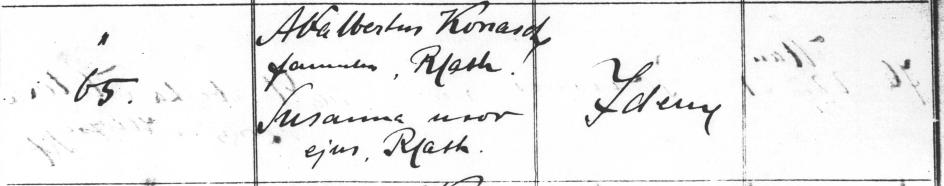 "
65.
Adalbertus Konasch
famulus, RKath.
Susanna uxor
ejus, RKath.
Idem